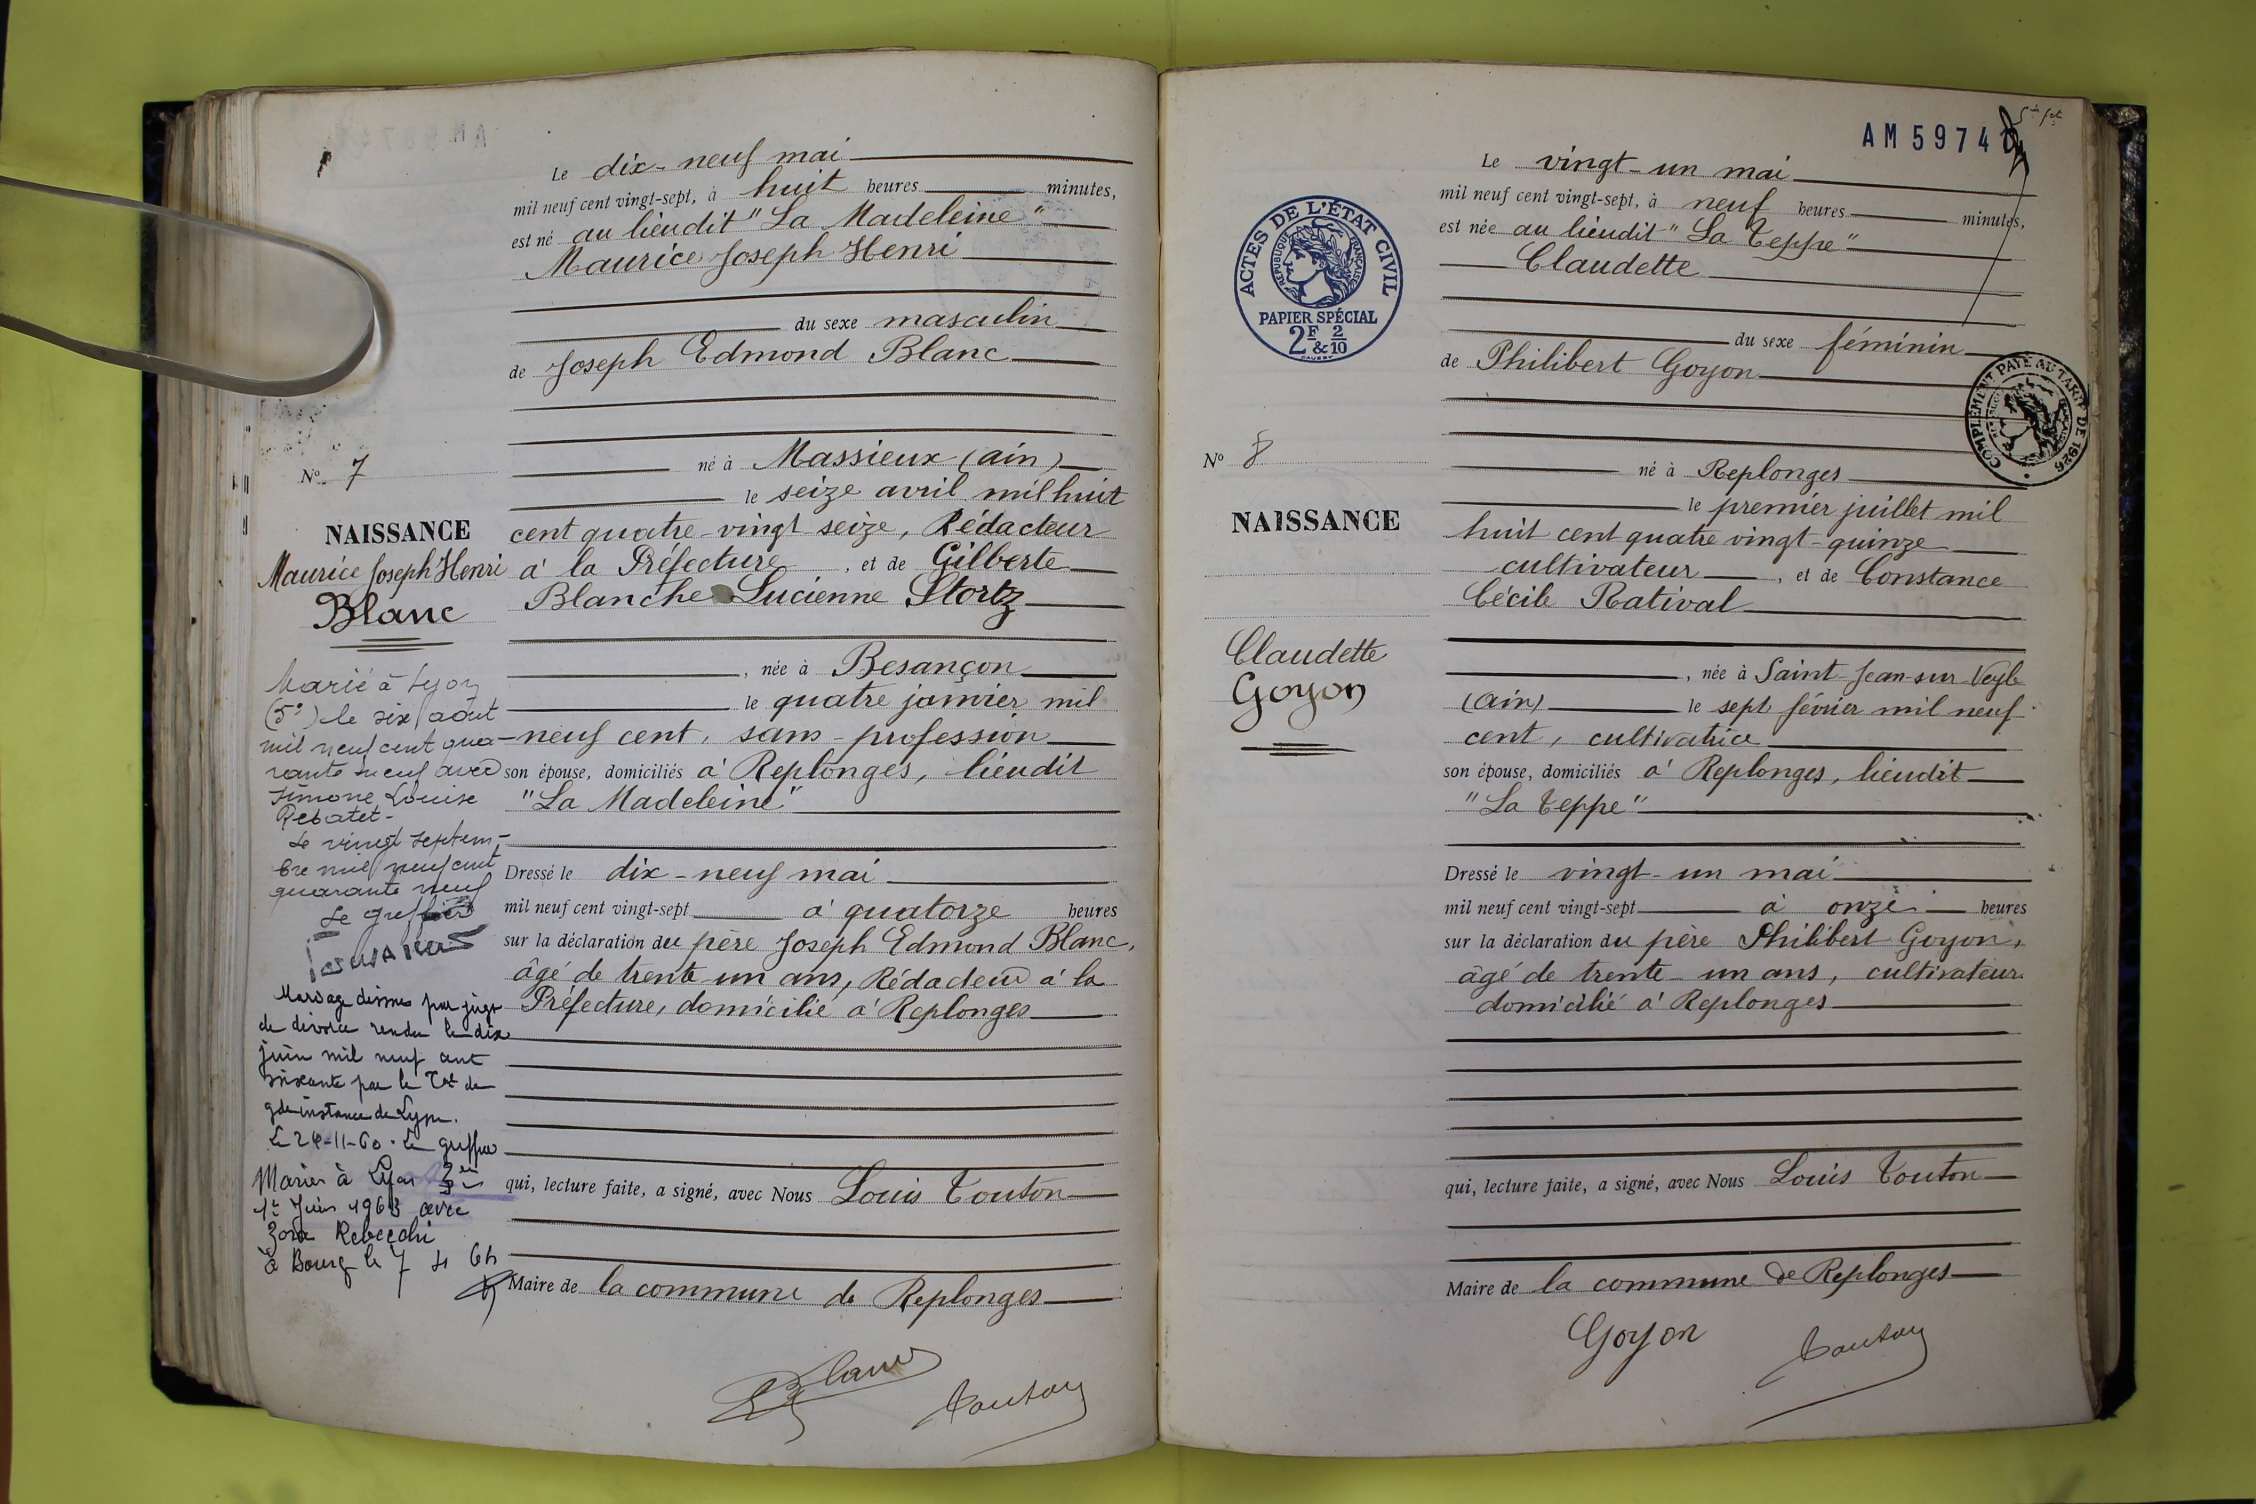 Le dix-neuf mai
mil neuf cent vingt-sept, à huit heures minutes,
est né au lieudit "La Madeleine"
Maurice Joseph Henri
du sexe masculin
de Joseph Edmond Blanc
né à Massieux (ain)
le seize avril mil huit
cent quatre-vingt seize, Rédacteur
à la Préfecture, et de Gilberte
Blanche Lucienne Stortz
, née à Besançon
le quatre janvier mil
neuf cent, sans-profession
son épouse, domiciliés à Replonges, lieudit
"La Madeleine"
Dressé le dix-neuf mai
mil neuf cent vingt-sept à quatorze heures
sur la déclaration du père Joseph Edmond Blanc,
âgé de trente un ans, Rédacteur à la
Préfecture, domicilié à Replonges
qui, lecture faite, a signé, avec Nous Louis Touton
Maire de la commune de Replonges
Blanc
Touton
N° 7
NAISSANCE
Maurice Joseph Henri
Blanc
Marié à Lyon
(5e) le six août
mil neuf cent qua-
rante neuf avec
Simone Louise
Rebatet-
Le vingt septem-
bre mil neuf cent
quarante neuf
Le greffier
Mariage dissous par jugt
de divorce rendu le dix
juin mil neuf cent
soixante par le Tal de
gde instance de Lyon.
Le 24-11-60. Le greffier
Marié à Lyon 3e
1er Juin 1963 avec
Zora Rebecchi
à Bourg le 7 4 64
AM 5974
ACTES DE L'ÉTAT CIVIL
RÉPUBLIQUE FRANÇAISE
PAPIER SPÉCIAL
2F & 2/10
Le vingt-un mai
mil neuf cent vingt-sept, à neuf heures minutes,
est née au lieudit "La Teppe"
Claudette
du sexe féminin
de Philibert Goyon
COMPLÉMENT PAYÉ AU TARIF DE 1926
né à Replonges
le premier juillet mil
huit cent quatre vingt-quinze
cultivateur, et de Constance
Cécile Rativat
, née à Saint-Jean-sur-Veyle
(ain) le sept février mil neuf
cent, cultivatrice
son épouse, domiciliés à Replonges, lieudit
"La Teppe"
Dressé le vingt-un mai
mil neuf cent vingt-sept à onze heures
sur la déclaration du père Philibert Goyon,
âgé de trente-un ans, cultivateur
domicilié à Replonges
qui, lecture faite, a signé, avec Nous Louis Touton
Maire de la commune de Replonges
Goyon
Touton
N° 8
NAISSANCE
Claudette
Goyon